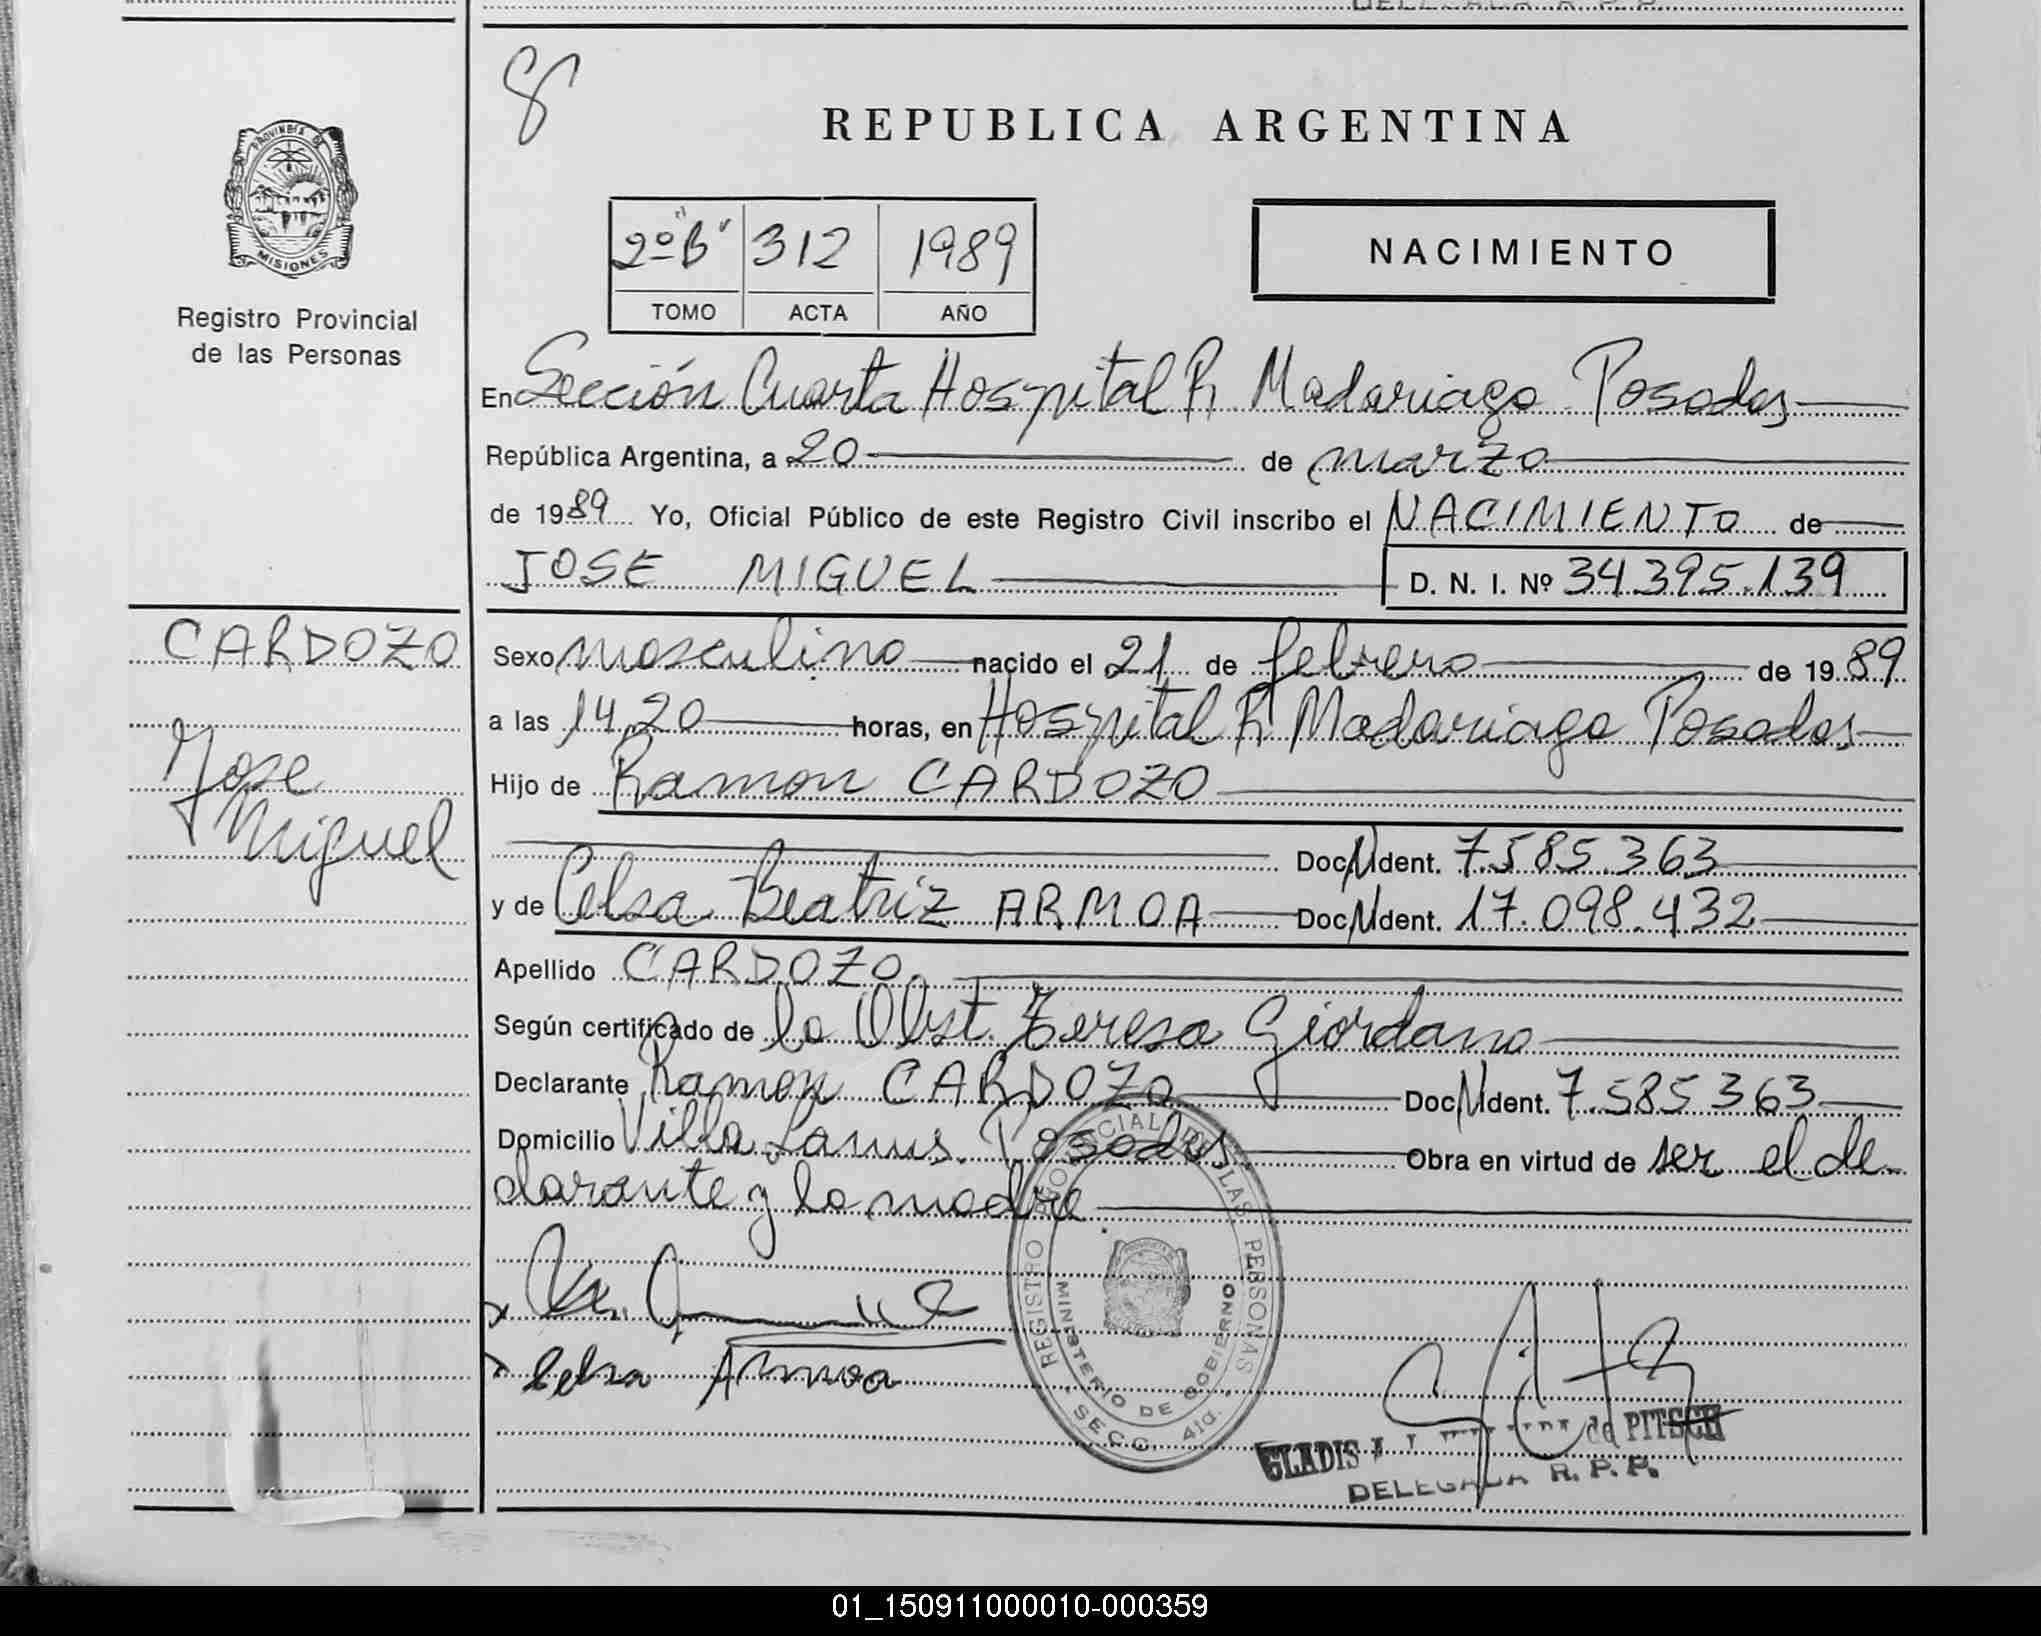 8
PROVINCIA DE
MISIONES
Registro Provincial
de las Personas
REPUBLICA ARGENTINA
2º "B" 312 1989
TOMO ACTA AÑO
NACIMIENTO
En Sección Cuarta Hospital R Madariaga Posadas
República Argentina, a 20 de marzo
de 1989 Yo, Oficial Público de este Registro Civil inscribo el NACIMIENTO de
JOSE MIGUEL D. N. I. Nº 34.395.139
CARDOZO
Jose
Miguel
Sexo masculino nacido el 21 de febrero de 1989
a las 14,20 horas, en Hospital R Madariaga Posadas
Hijo de Ramon CARDOZO
Doc. N Ident. 7.585.363
y de Celsa Beatriz ARMOA Doc. N Ident. 17.098.432
Apellido CARDOZO
Según certificado de la Obst. Teresa Giordano
Declarante Ramon CARDOZO Doc. N Ident. 7.585363
Domicilio Villa Lanus. Posadas Obra en virtud de ser el de-
clarante y la madre
x
x Celsa Armoa
REGISTRO PROVINCIAL DE LAS PERSONAS
MINISTERIO DE GOBIERNO
SECC. 4ta.
GLADIS de PITSCH
DELEGADA R. P. P.
01_150911000010-000359